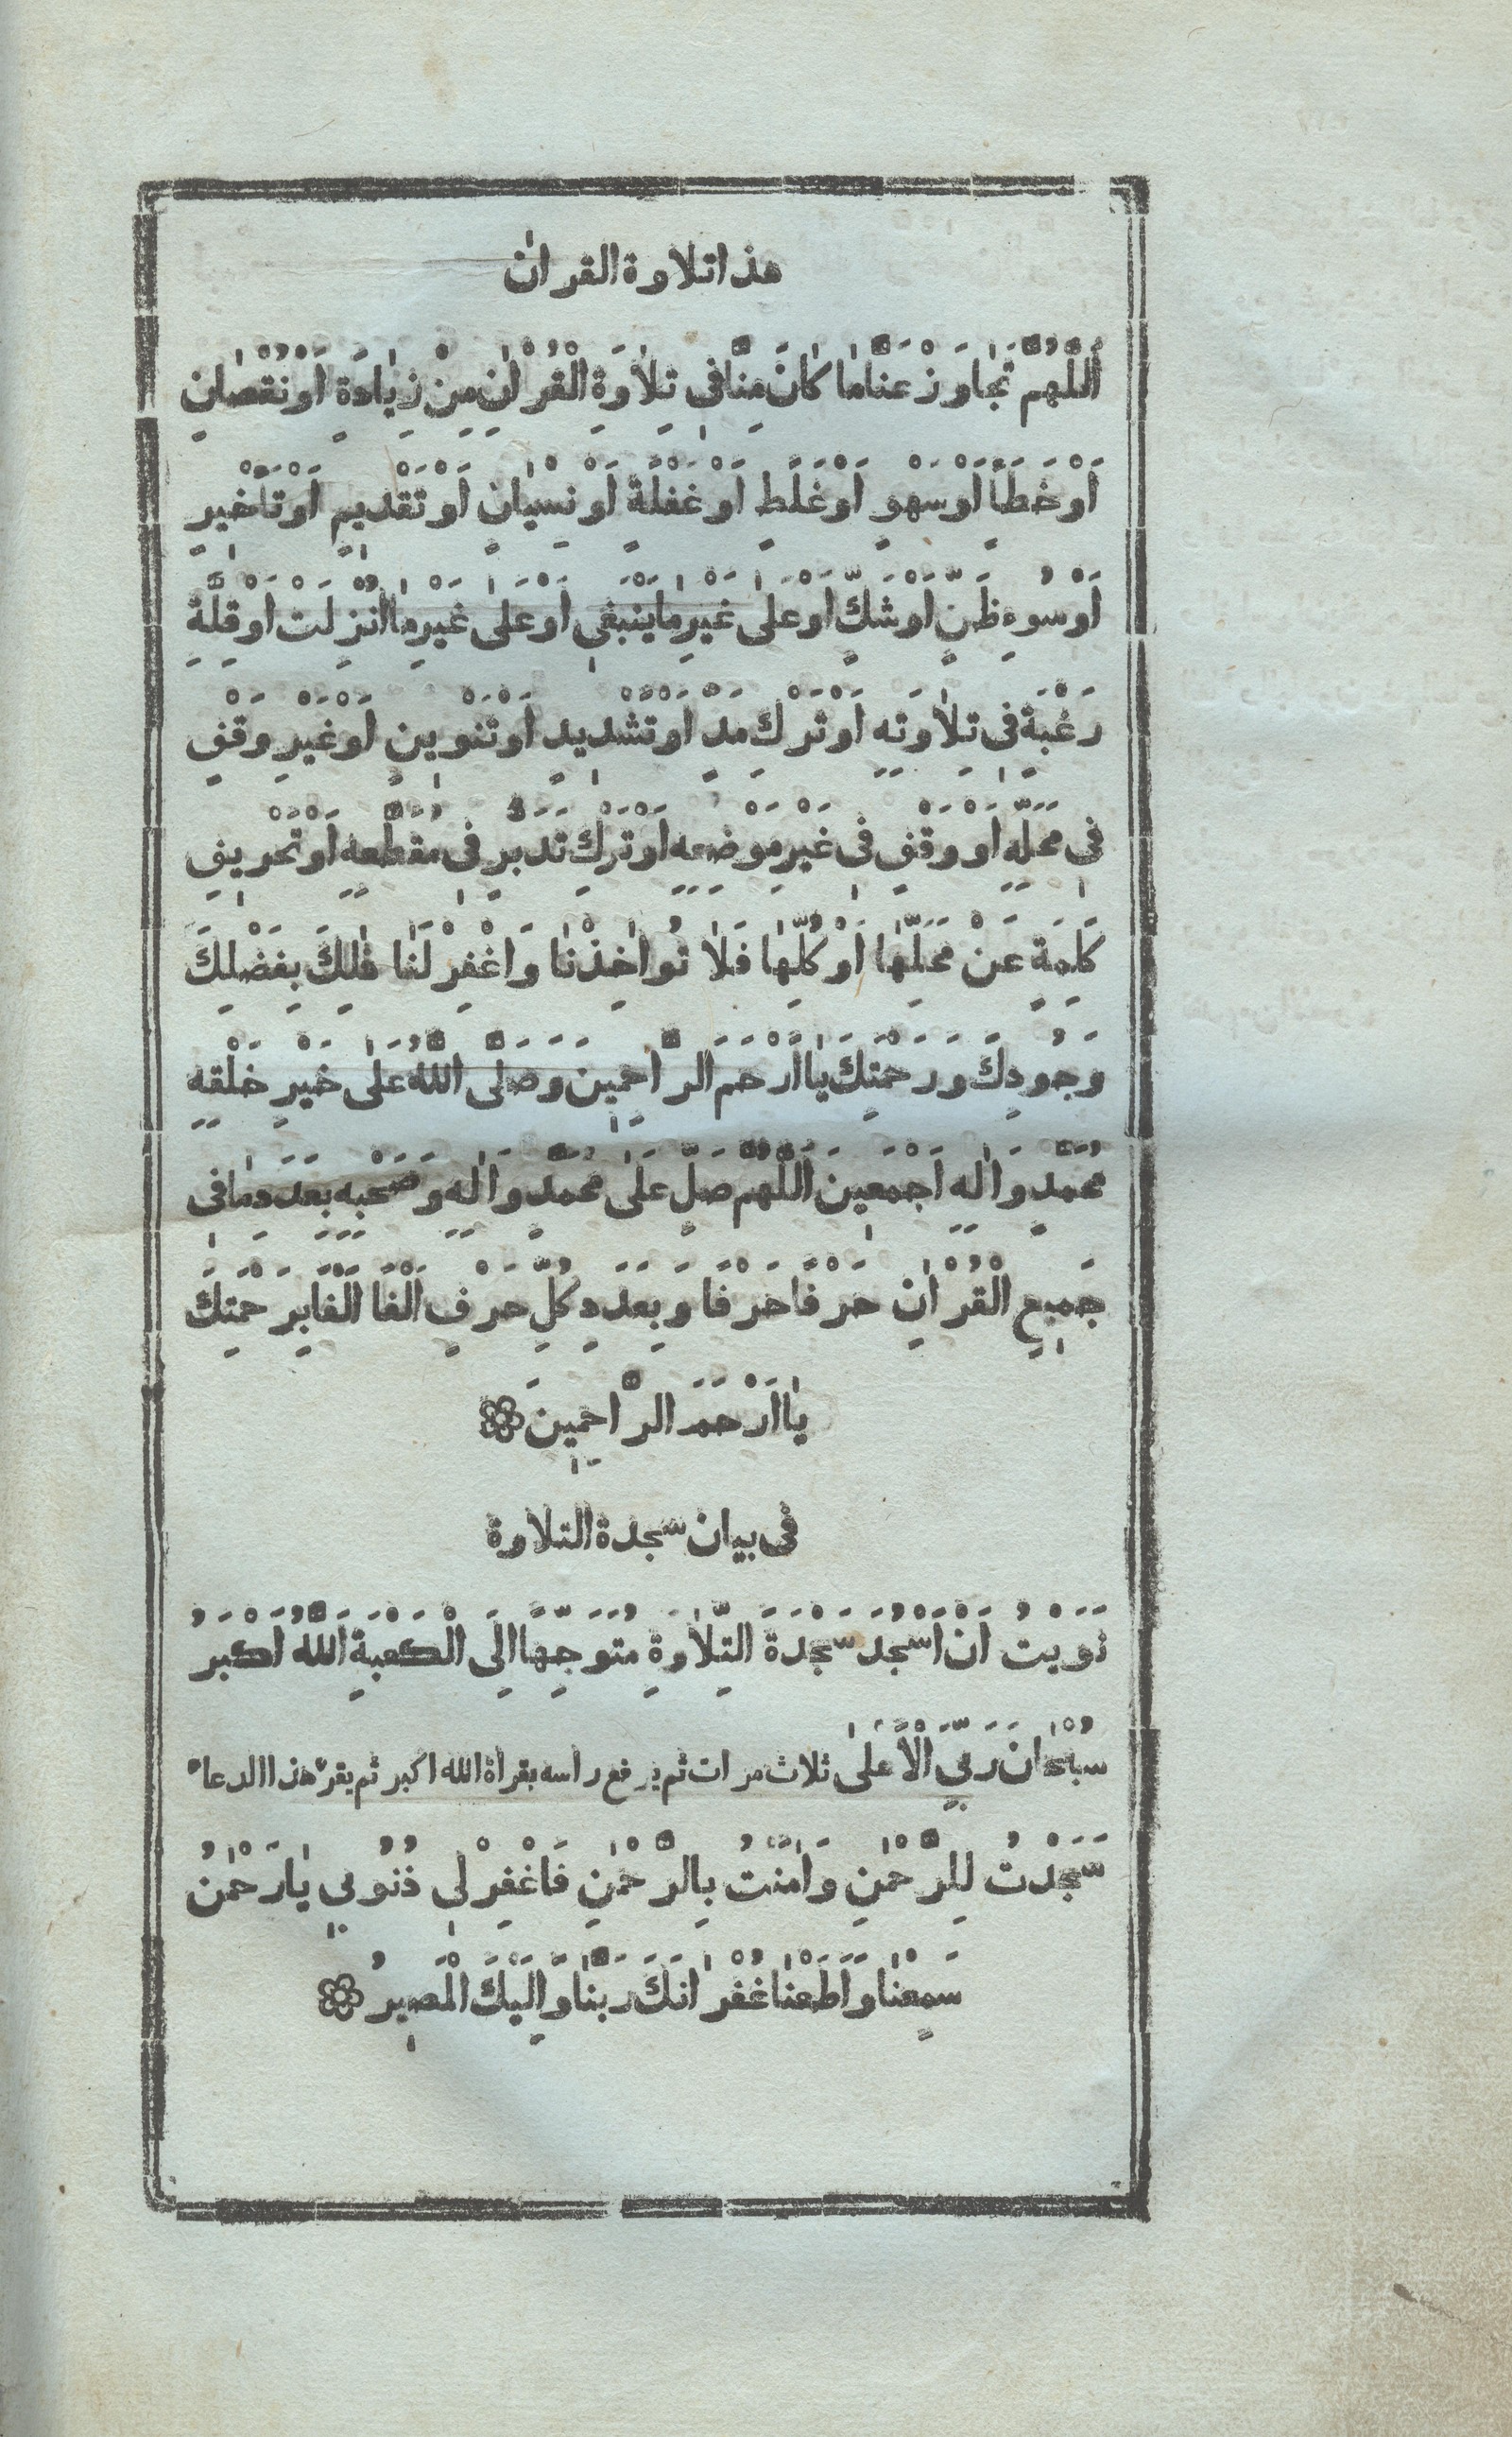 هذا تلاوة القرانٰ
اَللّٰهُمَّ تَجٰاوَزْ عَنّٰا مٰا كٰانَ مِنّٰا فِى تِلٰاوَةِ الْقُرْاٰنِ مِنْ زِيٰادَةٍ اَوْ نُقْصٰانٍ
اَوْ خَطَأٍ اَوْ سَهْوٍ اَوْ غَلَطٍ اَوْ غَفْلَةٍ اَوْ نِسْيٰانٍ اَوْ تَقْدِيمٍ اَوْ تَأْخِيرٍ
اَوْ سُوءِ ظَنٍّ اَوْ شَكٍّ اَوْ عَلٰى غَيْرِ مٰا يَنْبَغِى اَوْ عَلٰى غَيْرِ مٰا اُنْزِلَتْ اَوْ قِلَّةِ
رَغْبَةٍ فِى تِلٰاوَتِهِ اَوْ تَرْكِ مَدٍّ اَوْ تَشْدِيدٍ اَوْ تَنْوِينٍ اَوْ غَيْرِ وَقْفٍ
فِى مَحَلِّهِ اَوْ وَقْفٍ فِى غَيْرِ مَوْضِعِهِ اَوْ تَرْكِ تَدَبُّرٍ فِى مُقَطَّعِهِ اَوْ تَحْرِيفِ
كَلِمَةٍ عَنْ مَحَلِّهٰا اَوْ كُلِّهٰا فَلٰا تُوٰاخِذْنٰا وَاغْفِرْ لَنٰا ذٰلِكَ بِفَضْلِكَ
وَجُودِكَ وَرَحْمَتِكَ يٰا اَرْحَمَ الرّٰاحِمِينَ وَصَلَّى اللّٰهُ عَلٰى خَيْرِ خَلْقِهِ
مُحَمَّدٍ وَاٰلِهِ اَجْمَعِينَ اَللّٰهُمَّ صَلِّ عَلٰى مُحَمَّدٍ وَاٰلِهِ وَصَحْبِهِ بِعَدَدِ مٰا فِى
جَمِيعِ الْقُرْاٰنِ حَرْفًا حَرْفًا وَبِعَدَدِ كُلِّ حَرْفٍ اَلْفًا اَلْفًا بِرَحْمَتِكَ
يٰا اَرْحَمَ الرَّاحِمِينَ
فى بيان سجدة التلاوة
نَوَيْتُ اَنْ اَسْجُدَ سَجْدَةَ التِّلٰاوَةِ مُتَوَجِّهًا اِلَى الْكَعْبَةِ اَللّٰهُ اَكْبَرُ
سُبْحٰانَ رَبِّيَ الْاَعْلٰى ثلاث مرات ثم يرفع رأسه بقرأة الله اكبر ثم يقرأ هذا الدعاء
سَجَدْتُ لِلرَّحْمٰنِ وَاٰمَنْتُ بِالرَّحْمٰنِ فَاغْفِرْ لِى ذُنُوبِى يٰا رَحْمٰنُ
سَمِعْنٰا وَاَطَعْنٰا غُفْرٰانَكَ رَبَّنٰا وَاِلَيْكَ الْمَصِيرُ